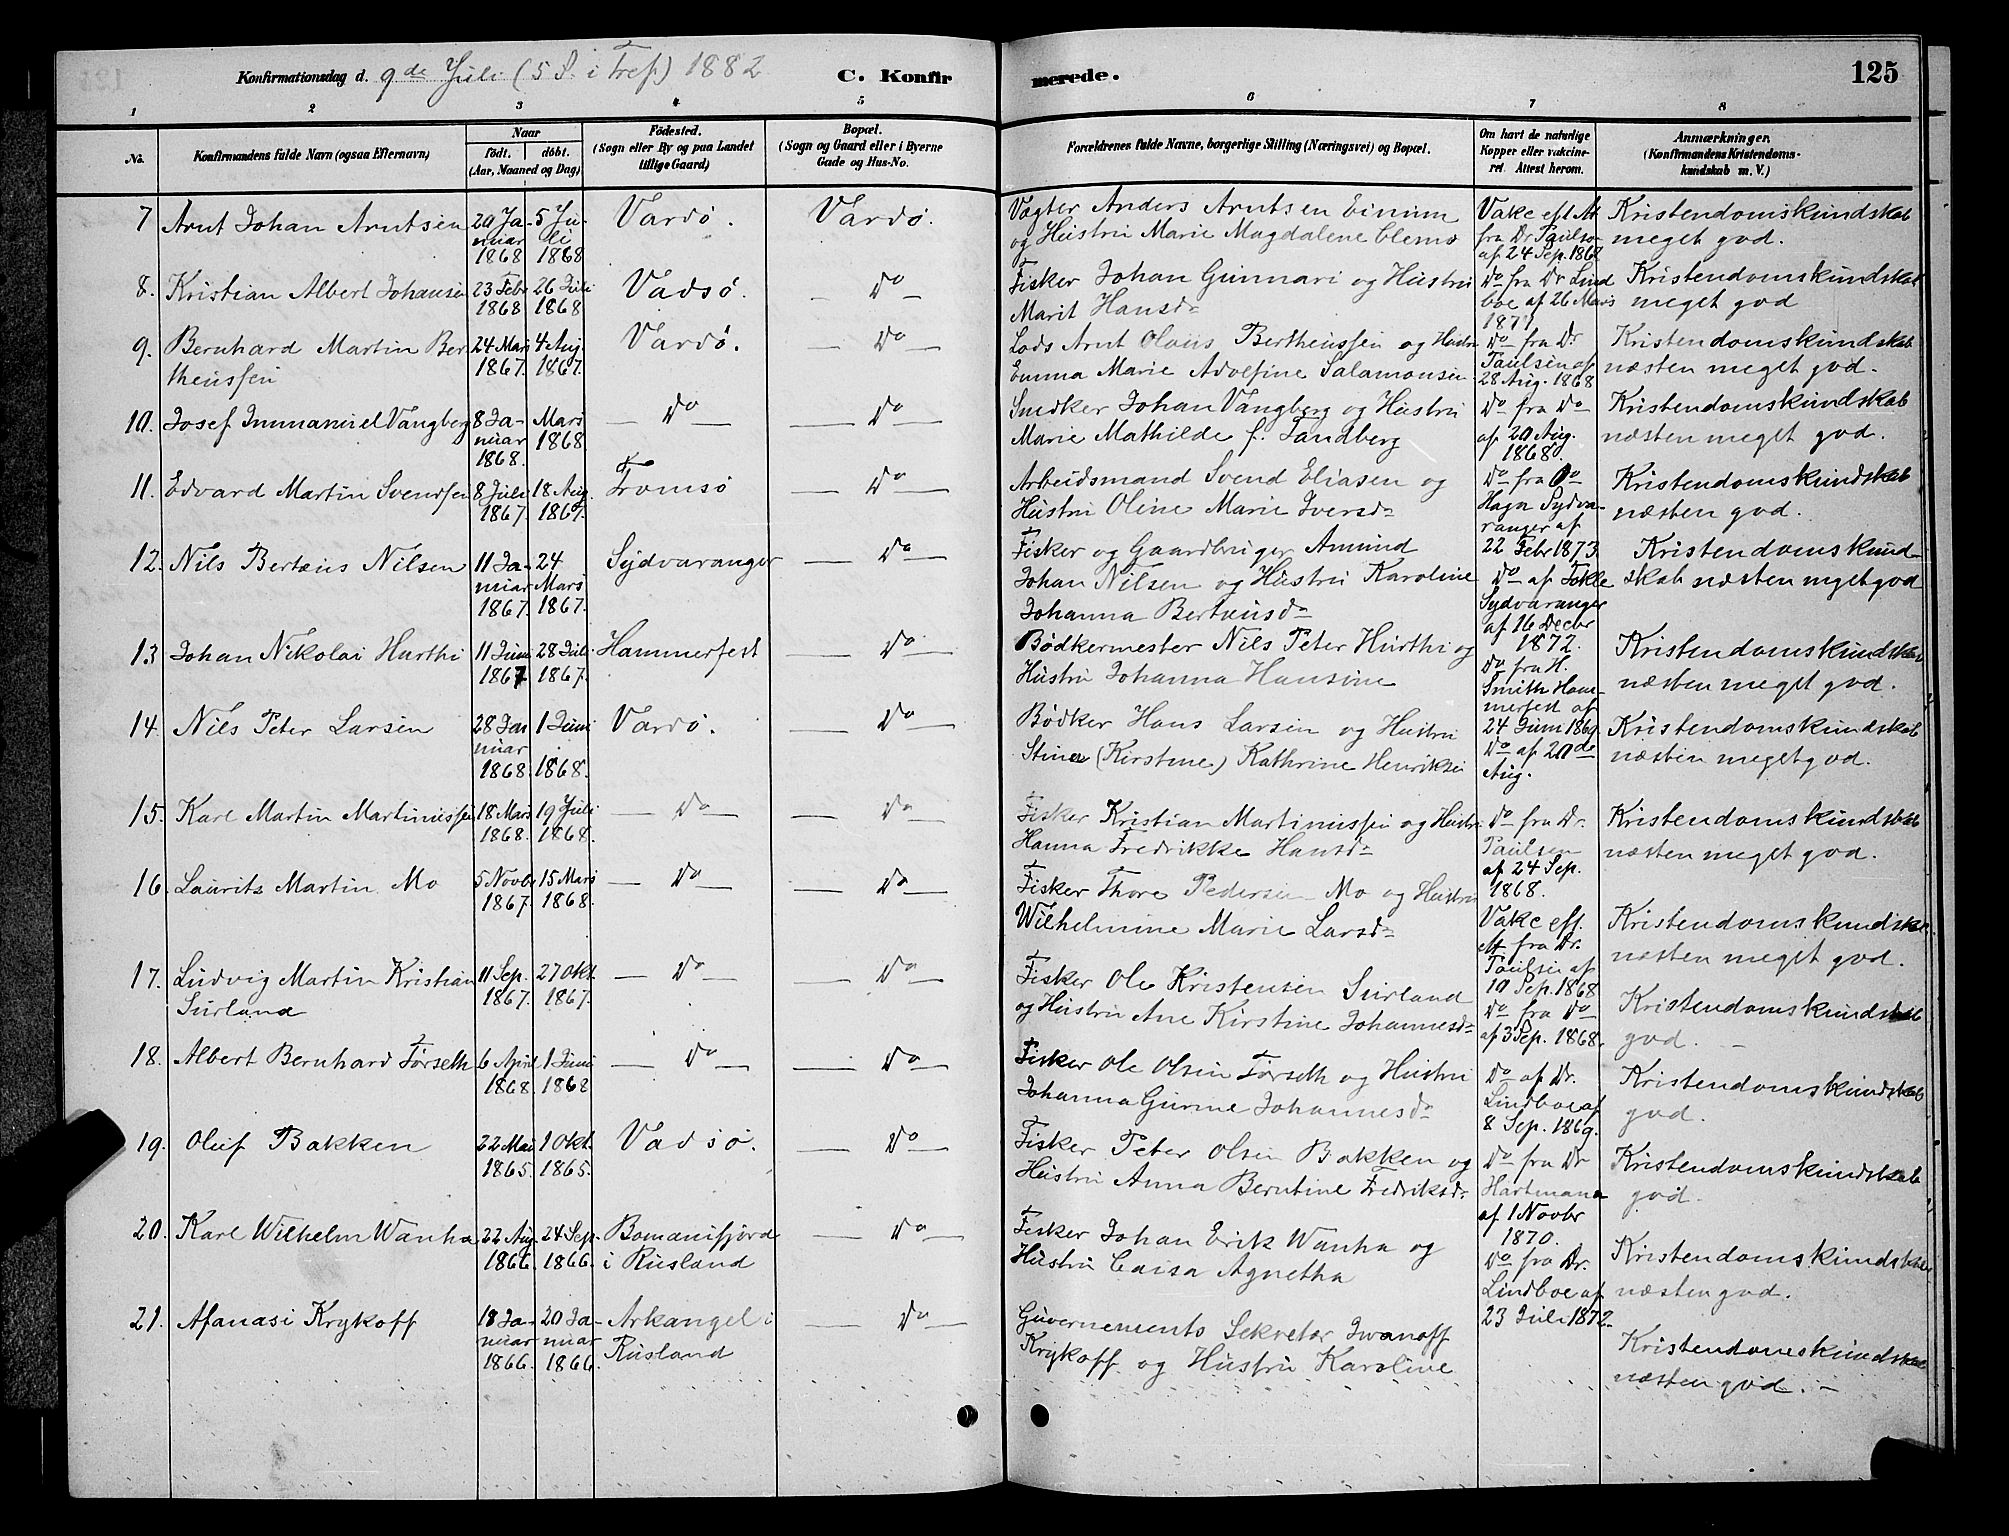 Konfirmationsdag d. 9de Juli (5 S. i Tref.) 1882 C. Konfirmerede. 125
1 2 3 4 5 6 7 8
No.
Konfirmandens fulde Navn (ogsaa Efternavn)
Naar
födt. döbt.
(Aar, Maaned og Dag)
Födested.
(Sogn eller By og paa Landet
tillige Gaard)
Bopæl.
(Sogn og Gaard eller i Byerne
Gade og Hus-No.
Forældrenes fulde Navne, borgerlige Stilling (Næringsvei) og Bopæl.
Om havt de naturlige
Kopper eller vakcine-
ret. Attest herom.
Anmærkninger.
(Konfirmandens Kristendoms-
kundskab m. V.)
7 Arnt Johan Arntsen
20 Januar 1868
5 Juli 1868
Vardø. Vardø.
Vægter Anders Arntsen
og Hustru Marie Magdalene Clems
Vakc eft At
fra Dr Paulsen
af 24 Sep. 1868
Kristendomskundskab
meget god.
8. Kristian Albert Johansen
23 Febr 1868
26 Juli 1868
Vadsø. — Do —
Fisker Johan Gunnari og Hustru
Marit Hansd
Do fra Dr Lind
boe af 26 Mars
Kristendomskundskab
meget god
9. Bernhard Martin Ber
theussen
24 Mars 1867.
4 Aug. 1867.
Vardø. — Do —
Lods Arnt Olaus Bertheussen og Hustru
Emma Marie Adolfine Salamonsen
Do fra Dr.
Paulsen af
28 Aug. 1868
Kristendomskundskab
næsten meget god.
10. Josef Immanuel Vangberg
8 Januar 1868.
Mars 1868
— Do — — Do —
Snedker Johan Vangberg og Hustru
Marie Mathilde f. Sandberg
Do fra Do
af 20 Aug.
1868.
Kristendomskundskab
næsten meget god.
11. Edvard Martin Svendsen
8 Juli 1867.
18 Aug. 1867.
Tromsø — Do —
Arbeidsmand Svend Eliasen og
Hustru Oline Marie Iversd
Do fra
Hagn Sydva-
ranger af
22 Febr 1873.
Kristendomskundskab
næsten god.
12. Nils Bertæus Nilsen
11 Januar 1867.
24 Mars 1867.
Sydvaranger — Do —
Fisker og Gaardbruger Amund
Johan Nilsen og Hustru Karoline
Johanna Bertæusd
Do af
Sydvaranger
af 16 Decbr
1872.
Kristendomskund-
skab næsten meget god
13 Johan Nikolai Hurthi
11 Juni 1867
28 Juli 1867.
Hammerfest — Do —
Bødkermester Nils Peter Hurthi og
Hustru Johanna Hansine
Do fra H.
Smith Ham-
merfest af
24 Juni 1869.
Kristendomskundskab
næsten meget god.
14. Nils Peter Larsen
28 Januar 1868.
1 Juni 1868.
Vardø. — Do —
Bødker Hans Larsen og Hustru
Stina (Kirstine) Kathrine Henriksen
Do af 20de
Aug.
Kristendomskundskab
næsten meget god.
15. Karl Martin Martinussen
18 Mars 1868.
19 Juli 1868.
— Do — — Do —
Fisker Kristian Martinussen og Hustru
Hanna Fredrikke Hansd
Do fra Dr.
Paulsen
af 24 Sep.
1868.
Kristendomskundskab
næsten meget god.
16. Laurits Martin Mo
5 Novbr 1867.
15 Mars 1868.
— Do — — Do —
Fisker Thore Pedersen Mo og Hustru
Wilhelmine Marie Larsd
Vakc eft.
At fra Dr.
Paulsen af
10 Sep. 1868
Kristendomskundskab
næsten meget god.
17. Ludvig Martin Kristian
Surland
11 Sep. 1867.
27 Okt. 1867.
— Do — — Do —
Fisker Ole Kristensen Surland
og Hustru Ane Kirstine Johannesd
Do fra Do
af 3 Sep. 1868.
Kristendomskundskab
god. —
18. Albert Bernhard Førseth
6 April 1868.
1 Juni 1868
— Do — — Do —
Fisker Ole Olsen Førseth og Hustru
Johanna Gurine Johannesd
Do af Dr.
Lindboe af
8 Sep. 1869.
Kristendomskundskab
god.
19. Oluf Bakken
22 Mai 1865.
1 Okt. 1865.
Vadsø. — Do —
Fisker Peter Olsen Bakken og
Hustru Anna Berntine Fredriksd.
Do fra Dr
Hartmann
af 1 Novbr
1870.
Kristendomskundskab
god.
20. Karl Wilhelm Wanha
22 Aug. 1866.
24 Sep. 1866.
Bomanifjord
i Rusland — Do —
Fisker Johan Erik Wanha og
Hustru Caisa Agnetha
Do fra Dr.
Lindboe af
23 Juli 1872.
Kristendomskundskab
næsten god.
21. Afanasi Krykoff
18 Januar 1866.
20 Januar 1866.
Arkangel i
Rusland — Do —
Guvernements Sekretær Iwanoff
Krykoff og Hustru Karoline
Kristendomskundskab
næsten god. —